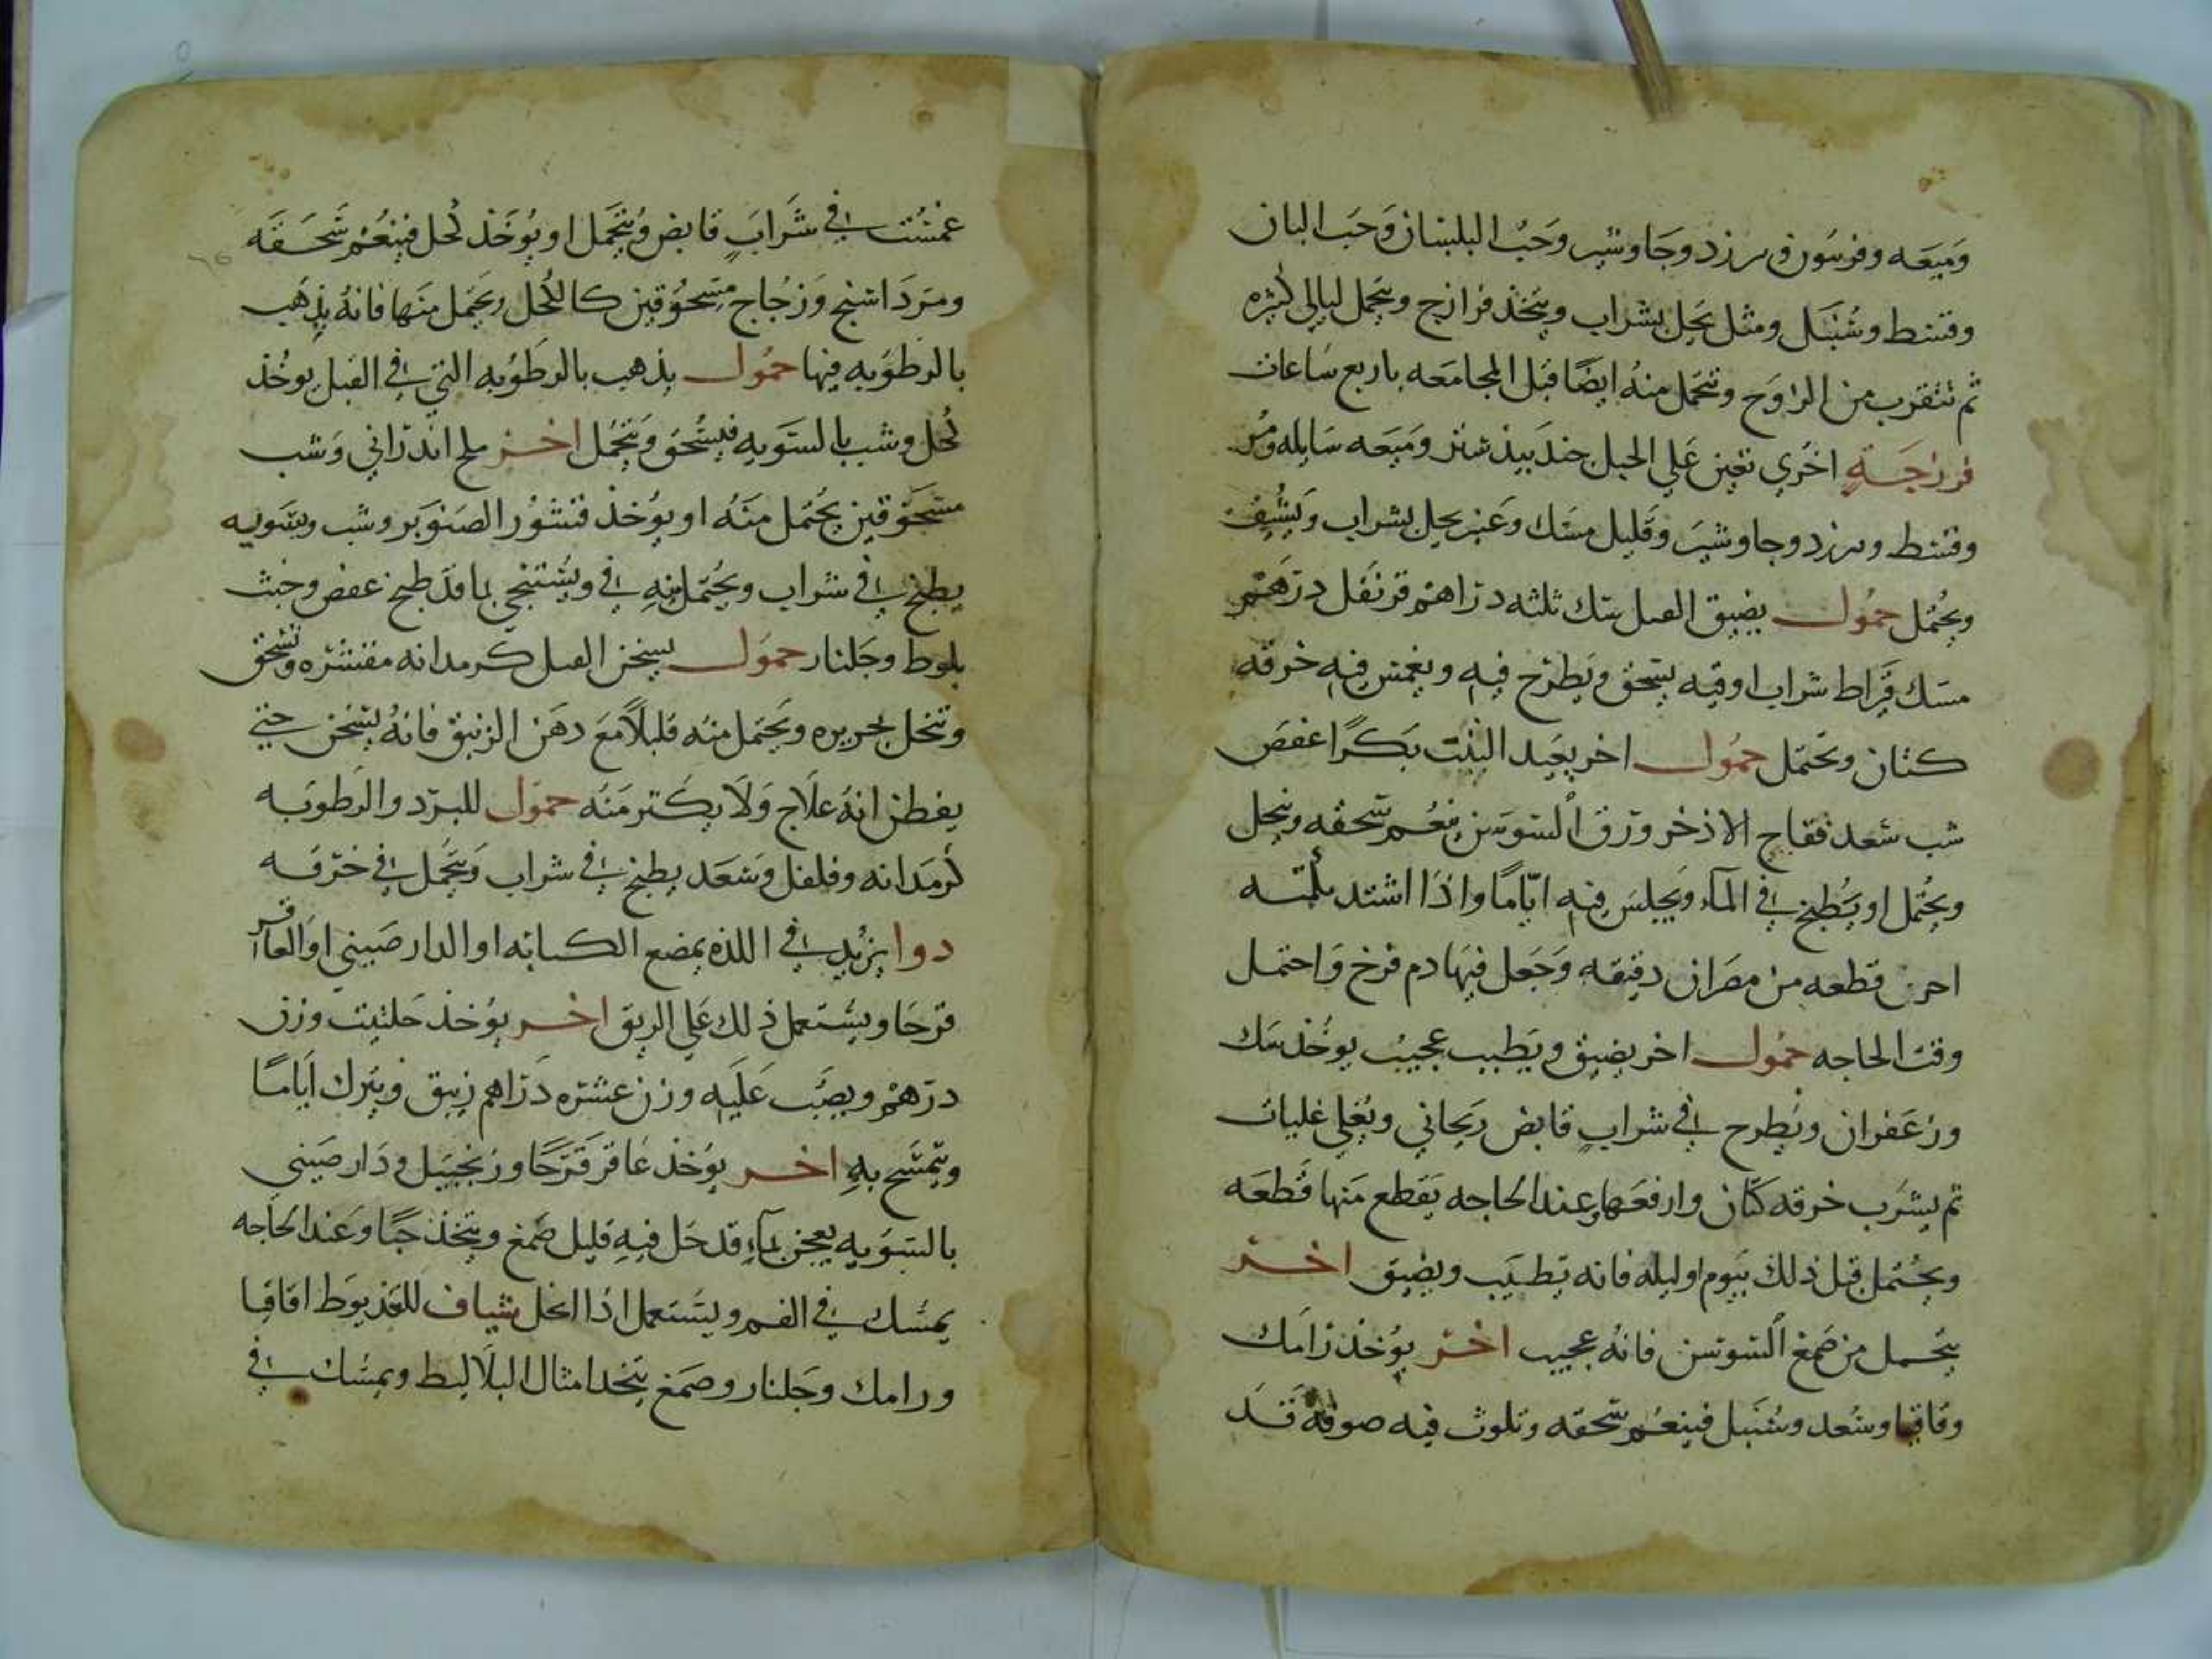 وميعه وفرسون وبرزد وجاوشير وحب البلسان وحب البان
وقسط وسنبل ومثل يحل بشراب ويتخذ فرازج ويتحمل ليالي كثيره
ثم تتقرب من الزوج وتتحمل منه ايضا قبل المجامعه باربع ساعات
فرزاجة اخري تعين علي الحبل جندبيدستر وميعه سايله ومر
وقسط وبرزد وجاوشير وقليل مسك وعنبر يحل بشراب ويشيف
ويحتمل حمول يضيق القبل سك ثلثه دراهم قرنفل درهم
مسك قيراط شراب اوقيه يسحق ويطرح فيه ويغمس فيه خرقه
كتان وتحتمل حمول اخر يعيد البنت بكرا عفص
شب سعد فقاح الاذخر ورق السوسن ينعم سحقه وينخل
ويحتمل او يطبخ في المآء ويجلس فيه اياما واذا اشتد
قطعه من مصران دقيقه وجعل فيها دم فرخ واحتمل
وقت الحاجه حمول اخر يضيق ويطيب عجيب يوخذ سك
وزعفران ويطرح في شراب قابض ريحاني ويغلي غليات
ثم يشرب خرقه كتان وارفعها وعند الحاجه يقطع منها قطعه
ويحتمل قبل ذلك بيوم او ليله فانه يطيب ويضيق اخر
يتحمل من صمغ السوسن فانه عجيب اخر يوخذ رامك
وقاقيا وسعد وسنبل فينعم سحقه وتلوث فيه صوفة قد
غمست في شراب قابض ويتحمل او يوخذ كحل فينعم سحقه
ومرداسنج وزجاج مسحوقين كالكحل وتحمل منها فانه يذهب
بالرطوبه فيها حمول يذهب بالرطوبه التي في القبل يوخذ
كحل وشب بالسويه فيسحق ويتحمل اخر ملح اندراني وشب
مسحوقين يحتمل منه او يوخذ قشور الصنوبر وشب وبسويه
يطبخ في شراب ويحتمل به في ويستنجي بما قد طبخ عفص وخبث
بلوط وجلنار حمول يسخن القبل كرمدانه مقشره وتسحق
وتنخل بحريره ويحتمل منه قليلا مع دهن الزنبق فانه يسخن حتي
يفطن انه علاج ولا يكثر منه حمول للبرد والرطوبه
كرمدانه وفلفل وسعد يطبخ في شراب ويتحمل في خرقه
دوا يزيد في اللذه يمضع الكبابه او الدار صيني او العاقر
قرحا ويستعمل ذلك علي الريق اخر يوخذ حلتيت وزن
درهم ويصب عليه وزن عشره دراهم زيبق ويترك اياما
ويتمسح به اخر يوخذ عاقر قرحا وزنجبيل ودار صيني
بالسويه يعجن بمآء قد حل فيه قليل صمغ ويتخذ حبا وعند الحاجه
يمسك في الفم ويستعمل اذا انحل شياف للعذيوط اقاقيا
ورامك وجلنار وصمغ يتخد امثال البلاليط ويمسك في